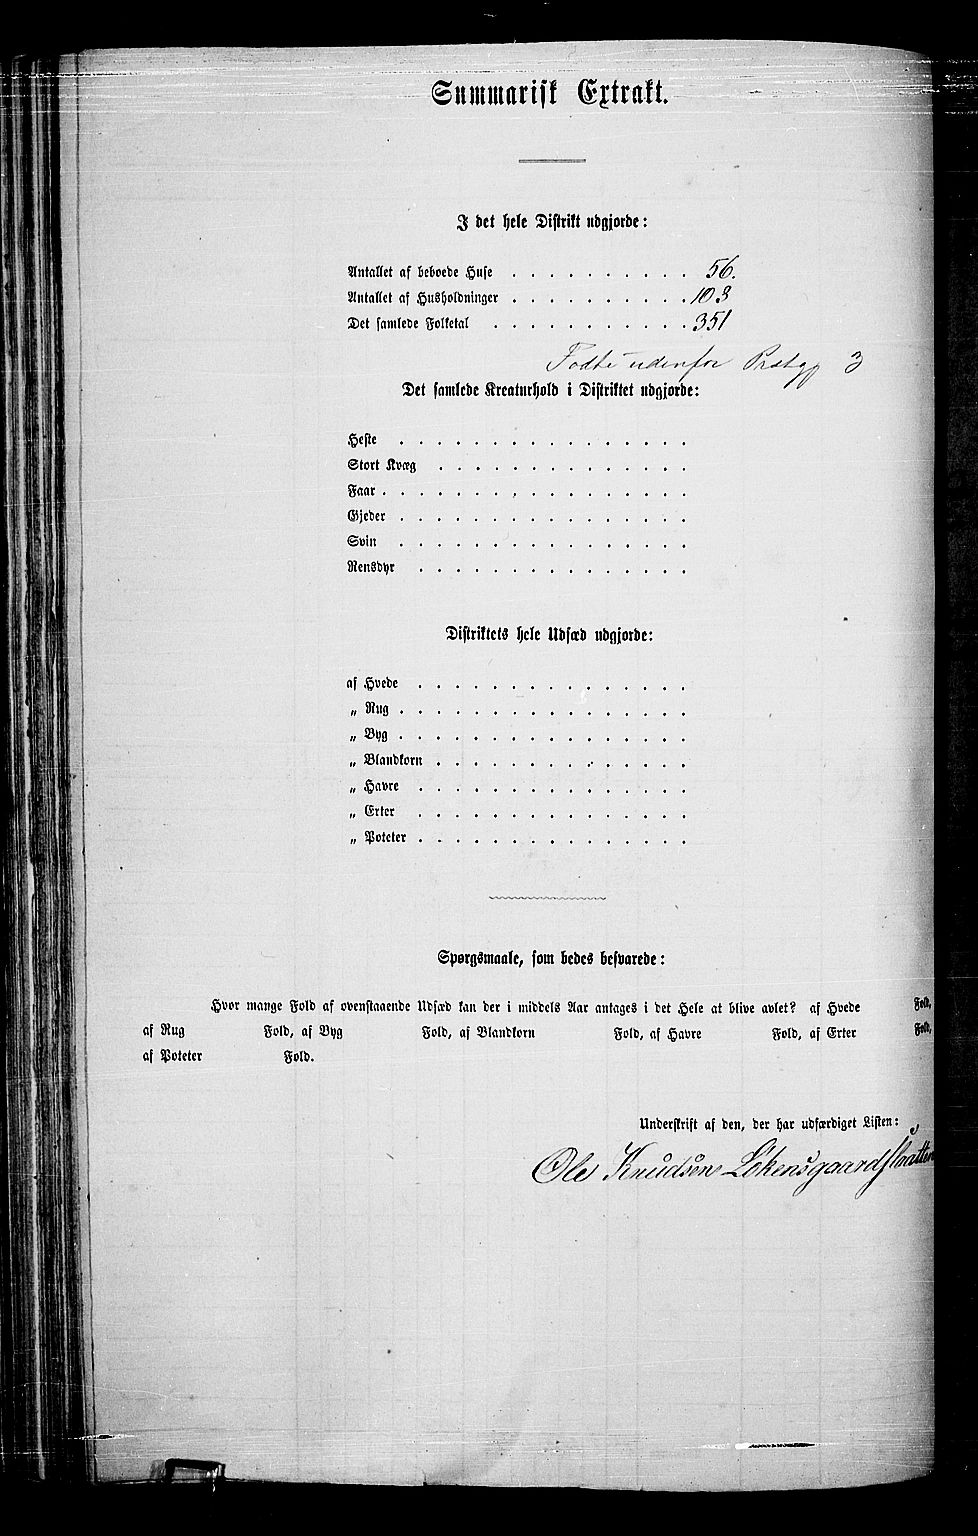 Summarisk Extrakt.
I det hele Distrikt udgjorde:
Antallet af beboede Huse . . . . . . . . . . 56.
Antallet af Husholdninger . . . . . . . . . . 103
Det samlede Folketal . . . . . . . . . . . 351
Fødte udenfor Prstgj 3
Det samlede Kreaturhold i Distriktet udgjorde:
Heste . . . . . . . . . . . . . . . .
Stort Kvæg . . . . . . . . . . . . . .
Faar . . . . . . . . . . . . . . . . .
Gjeder . . . . . . . . . . . . . . . .
Svin . . . . . . . . . . . . . . . .
Rensdyr . . . . . . . . . . . . . . .
Distriktets hele Udsæd udgjorde:
af Hvede . . . . . . . . . . . . . . .
„ Rug . . . . . . . . . . . . . . . .
„ Byg . . . . . . . . . . . . . . . .
„ Blandkorn . . . . . . . . . . . . . .
„ Havre . . . . . . . . . . . . . . .
„ Erter . . . . . . . . . . . . . . .
„ Poteter . . . . . . . . . . . . . . .
Spørgsmaale, som bedes besvarede:
Hvor mange Fold af ovenstaaende Udsæd kan der i middels Aar antages i det Hele at blive avlet? af Hvede Fold,
af Rug Fold, af Byg Fold, af Blandkorn Fold, af Havre Fold, af Erter Fold,
af Poteter Fold.
Underskrift af den, der har udfærdiget Listen:
Ole Knudsen Løkensgaard